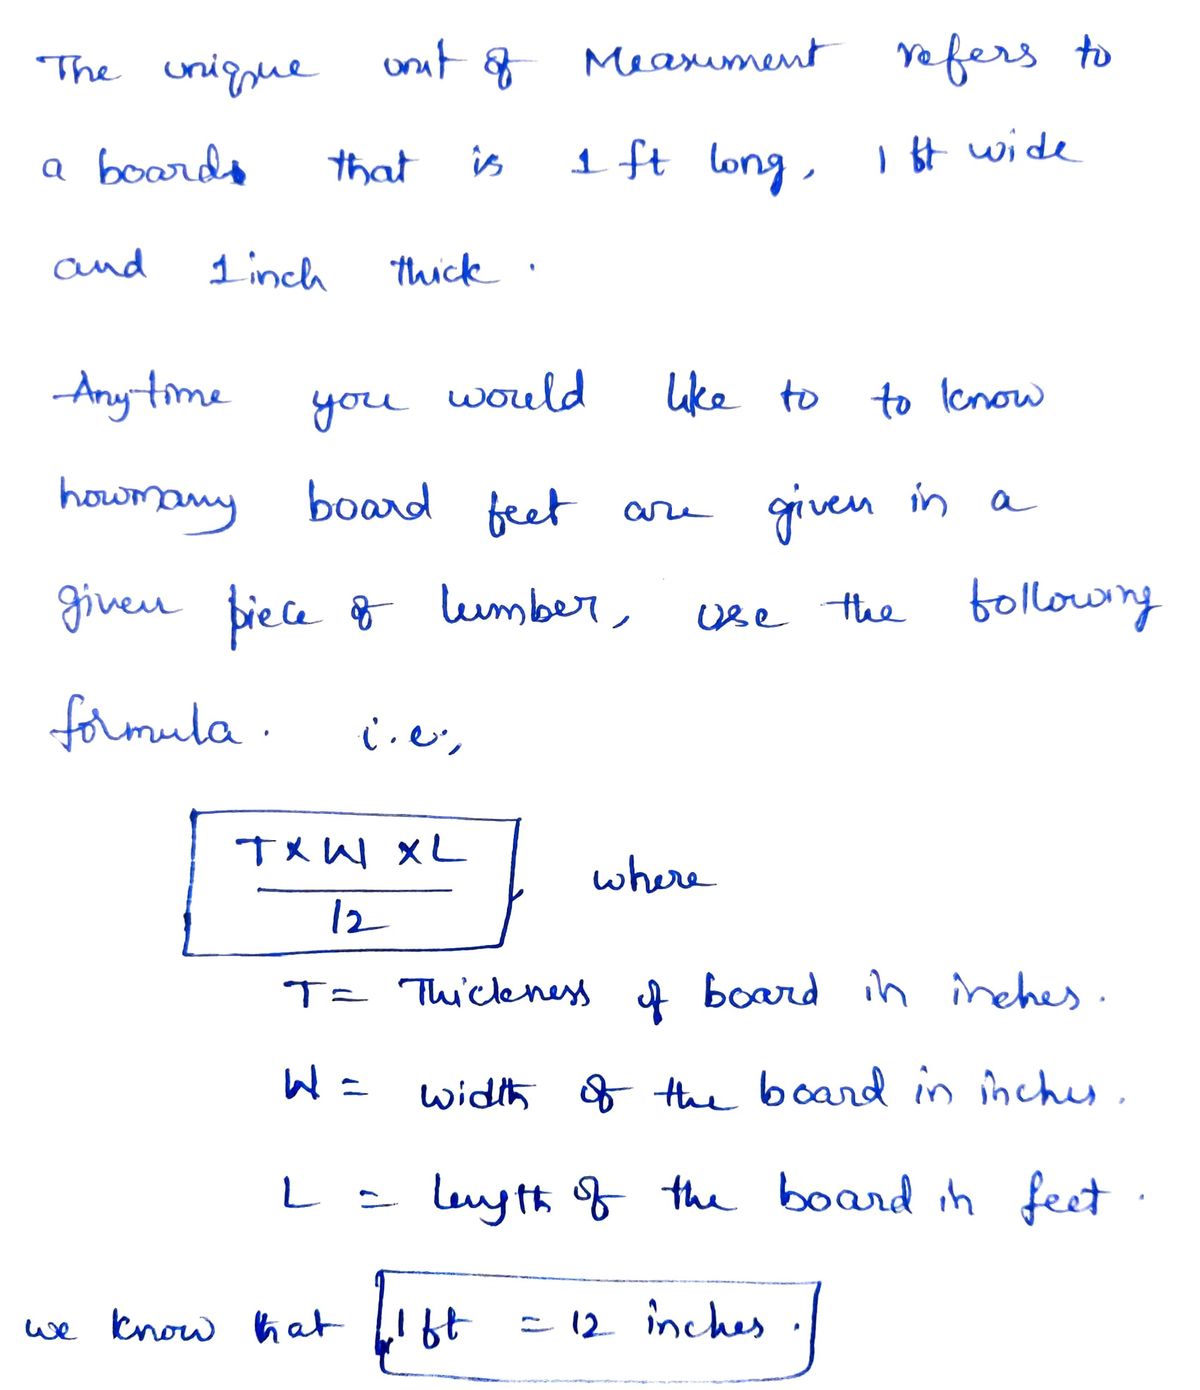 The unique unit of Measurment refers to
a boards that is 1 ft long, 1 ft wide
and 1 inch thick.
Anytime you would like to to know
howmany board feet are given in a
given piece of lumber, use the following
formula. i.e.,
T x W x L
12
where
T = Thickness of board in inches.
W = width of the board in inches.
L = length of the board in feet.
we know that 1 ft = 12 inches.